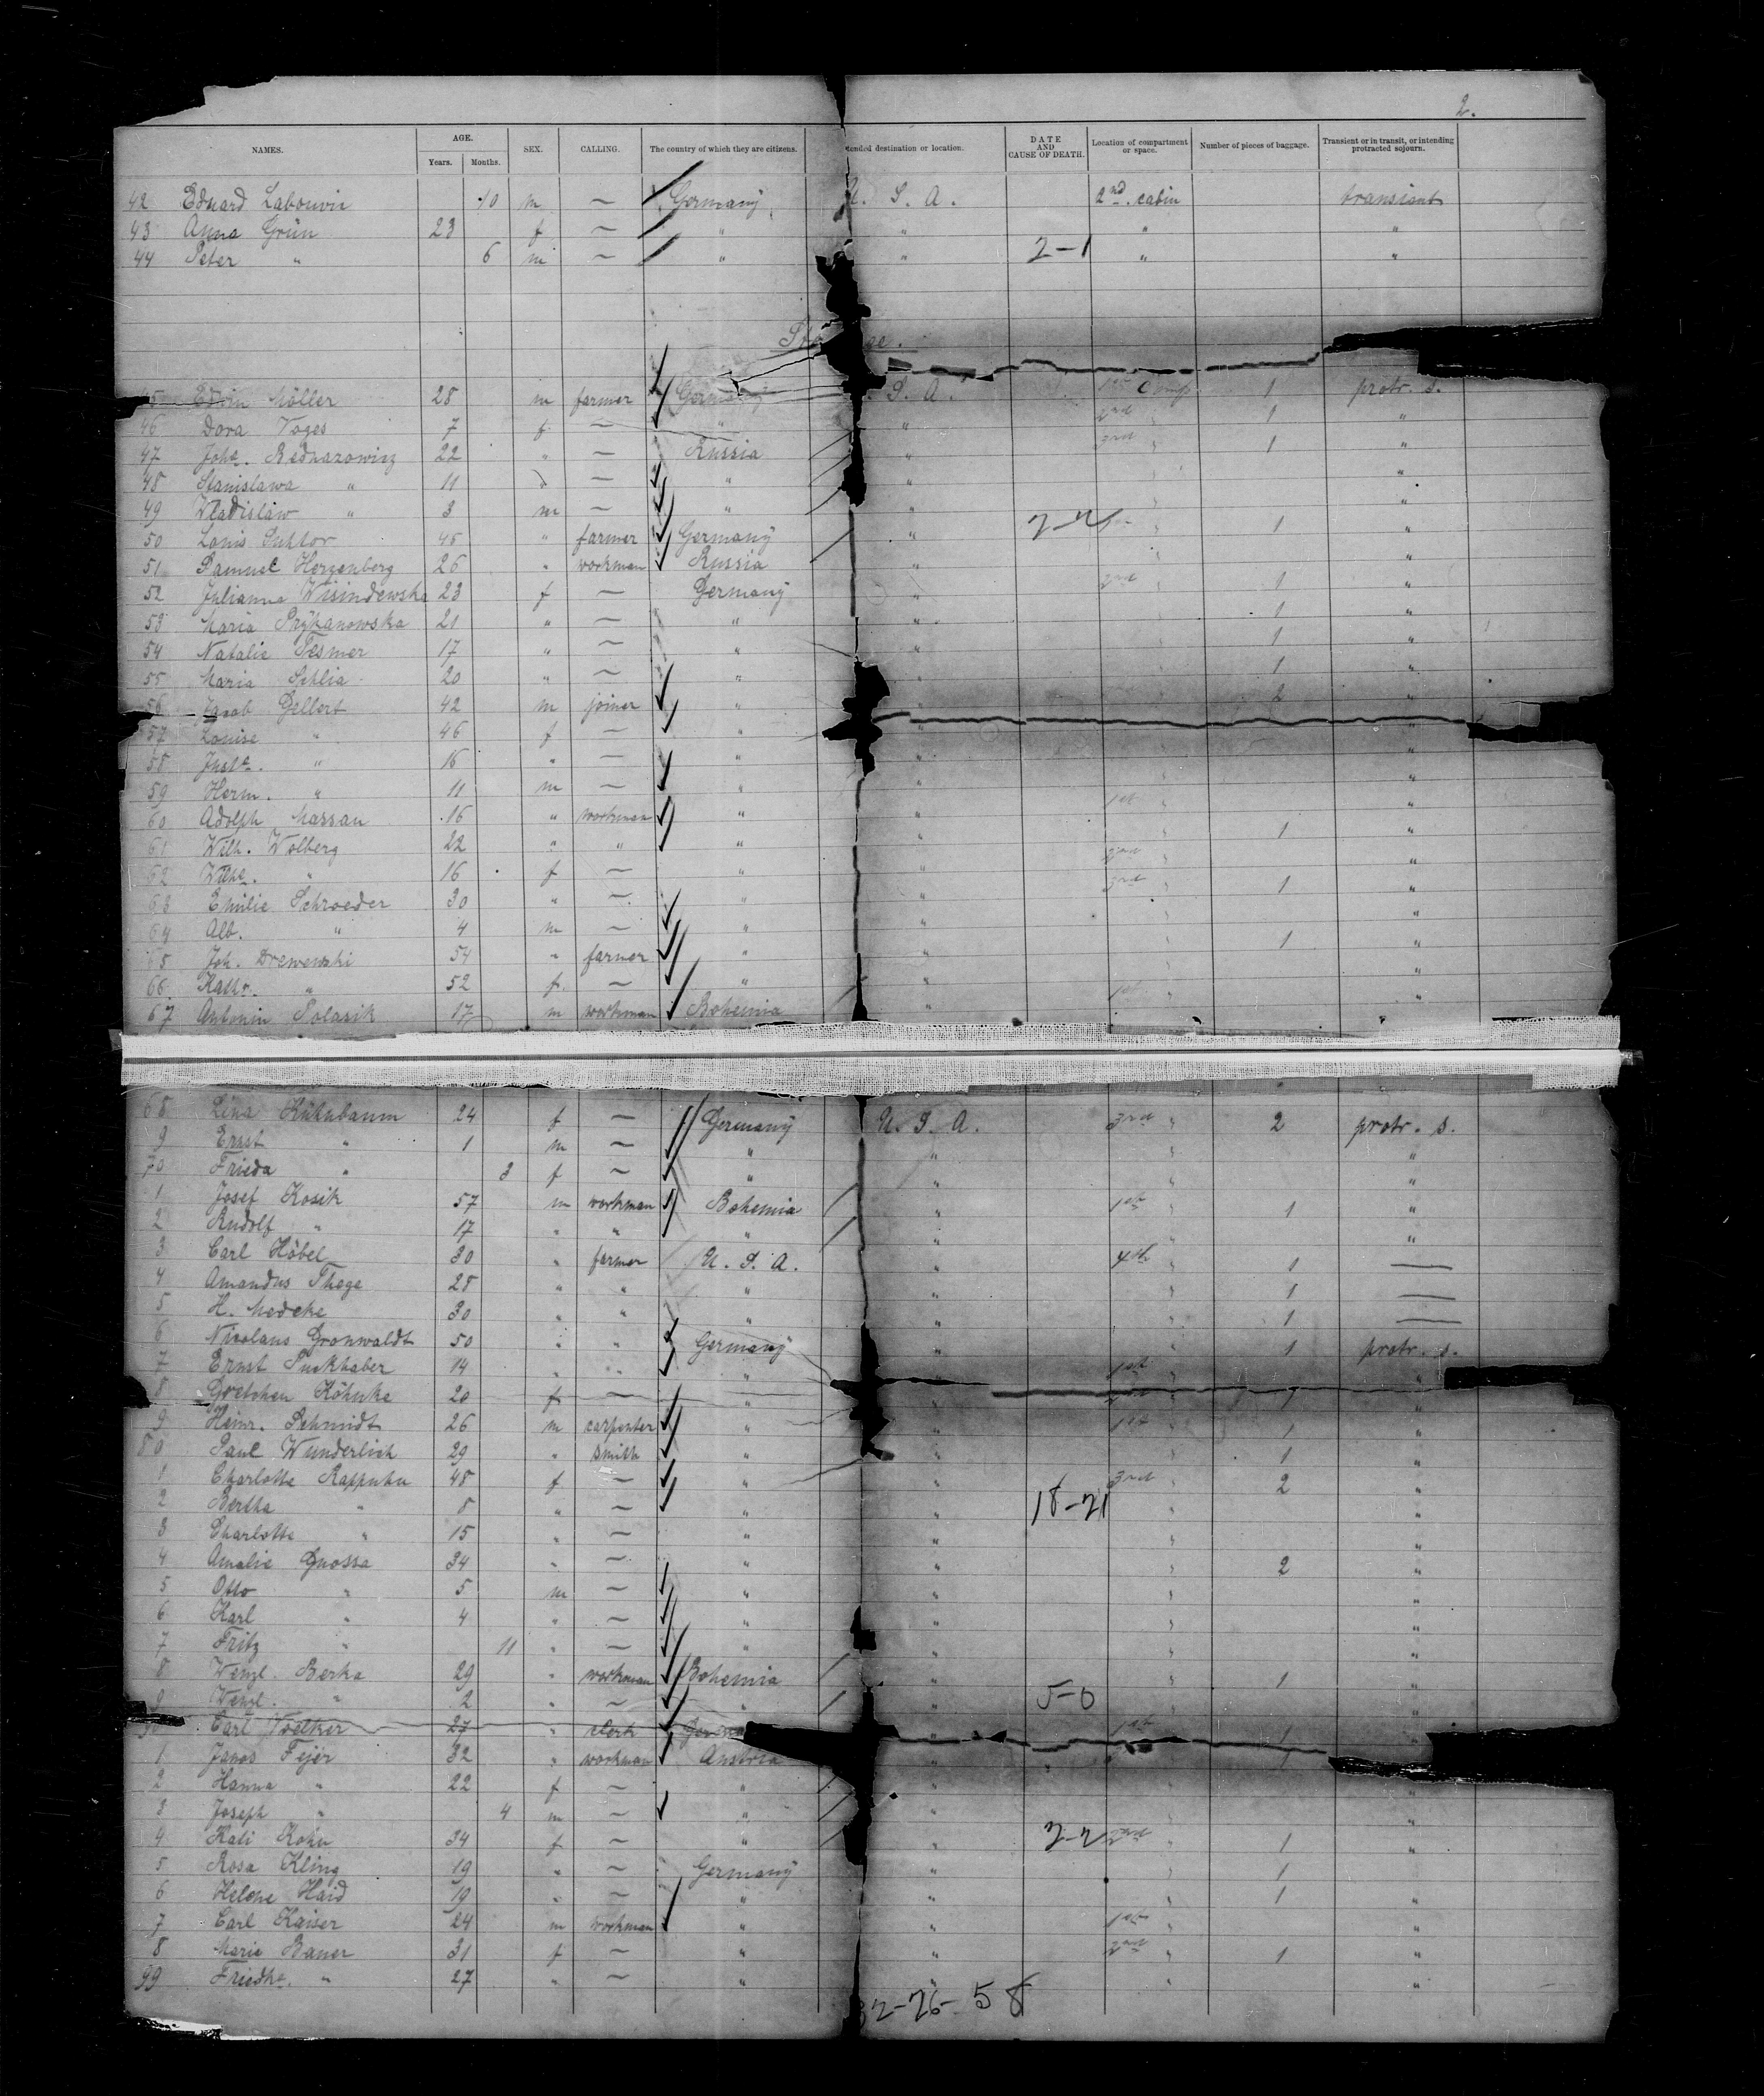 2.
NAMES. AGE. Years. Months. SEX. CALLING. The country of which they are citizens. tended destination or location. DATE AND CAUSE OF DEATH. Location of compartment or space. Number of pieces of baggage. Transient or in transit, or intending protracted sojourn.
42 Eduard Labouvir 10 m — Germany U. S. A. 2nd cabin transient
43 Anna Grün 23 f — " " " "
44 Peter " 6 m — " " 2-1 " "
45 Edvin Möller 28 m farmer Germany S. A. 1st Comp 1 protr. s.
46 Dora Voges 7 f — " " 2nd 1 "
47 Johe. Bednarowicz 22 " — Russia " 3rd " 1 "
48 Stanislawa " 11 " — " " "
49 Wladislaw " 3 m — " " " "
50 Louis Suhlor 45 " farmer Germany " " 1 "
51 Samuel Herzenberg 26 " workman Russia " " "
52 Julianna Wisindewska 23 f — Germany " 2nd " 1 "
53 Maria Prykanowska 21 " — " " 1 "
54 Natalie Tesmer 17 " — " " " 1 "
55 Maria Schlia 20 " — " " 1 "
56 Jacob Gellert 42 m joiner " " " 2 "
57 Louise " 46 f — " " "
58 Juste. " 16 " — " " "
59 Herm. " 11 m — " " "
60 Adolph Massau 16 " workman " " 1st " "
61 Wilh. Wolberg 22 " " " " 1 "
62 Wilhe. " 16 f — " " 2nd " "
63 Emilie Schroeder 30 " — " " 3rd " 1 "
64 Alb. " 4 m — " " " "
65 Joh. Drewewski 54 " farmer " " " 1 "
66 Kath. " 52 f — " " " "
67 Antonin Polasik 17 m workman Bohemia " 1st " "
68 Lina Kühnbaum 24 f — Germany U. S. A. 3rd " 2 protr. s.
9 Ernst " 1 m — " " " "
70 Frieda " 3 f — " " " "
1 Josef Kosik 57 m workman Bohemia " 1st " 1 "
2 Rudolf " 17 " " " " " "
3 Carl Höbel 30 " farmer U. S. A. " 4th " 1 —
4 Amandus Thege 28 " " " " " 1 —
5 H. Medeke 30 " " " " " 1 —
6 Nicolaus Gronwaldt 50 " " Germany " " 1 protr. s.
7 Ernst Puckhaber 14 " " " " 1st " "
8 Gretchen Köhnke 20 f — " " 1 "
9 Heinr. Schmidt 26 m carpenter " " 1st " 1 "
80 Paul Wunderlich 29 " smith " " 1 "
1 Charlotte Rappuhn 48 f — " " 3rd " 2 "
2 Bertha " 8 " — " " 18-21 " "
3 Charlotte " 15 " — " " " "
4 Amalie Gnossa 34 " — " " " 2 "
5 Otto " 5 m — " " " "
6 Karl " 4 " — " " " "
7 Fritz " 11 " — " " " "
8 Wenzl. Berka 29 " workman Bohemia " " 1 "
9 Wenzl. " 2 " — " " 5-0 " "
90 Carl Voelker 27 " clerk " 1st " 1 "
1 Janos Fejér 32 " workman Austria " " 1 "
2 Hanna " 22 f — " " "
3 Joseph " 4 m — " " " "
4 Kati Kohn 34 f — " " 2nd " 1 "
5 Rosa Kling 19 " — Germany " " 1 "
6 Helene Haid 19 " — " " " 1 "
7 Carl Kaiser 24 m workman " " 1st " "
8 Marie Bauer 31 f — " " 2nd " 1 "
99 Friedke. " 27 " — " " " "
32-26-58